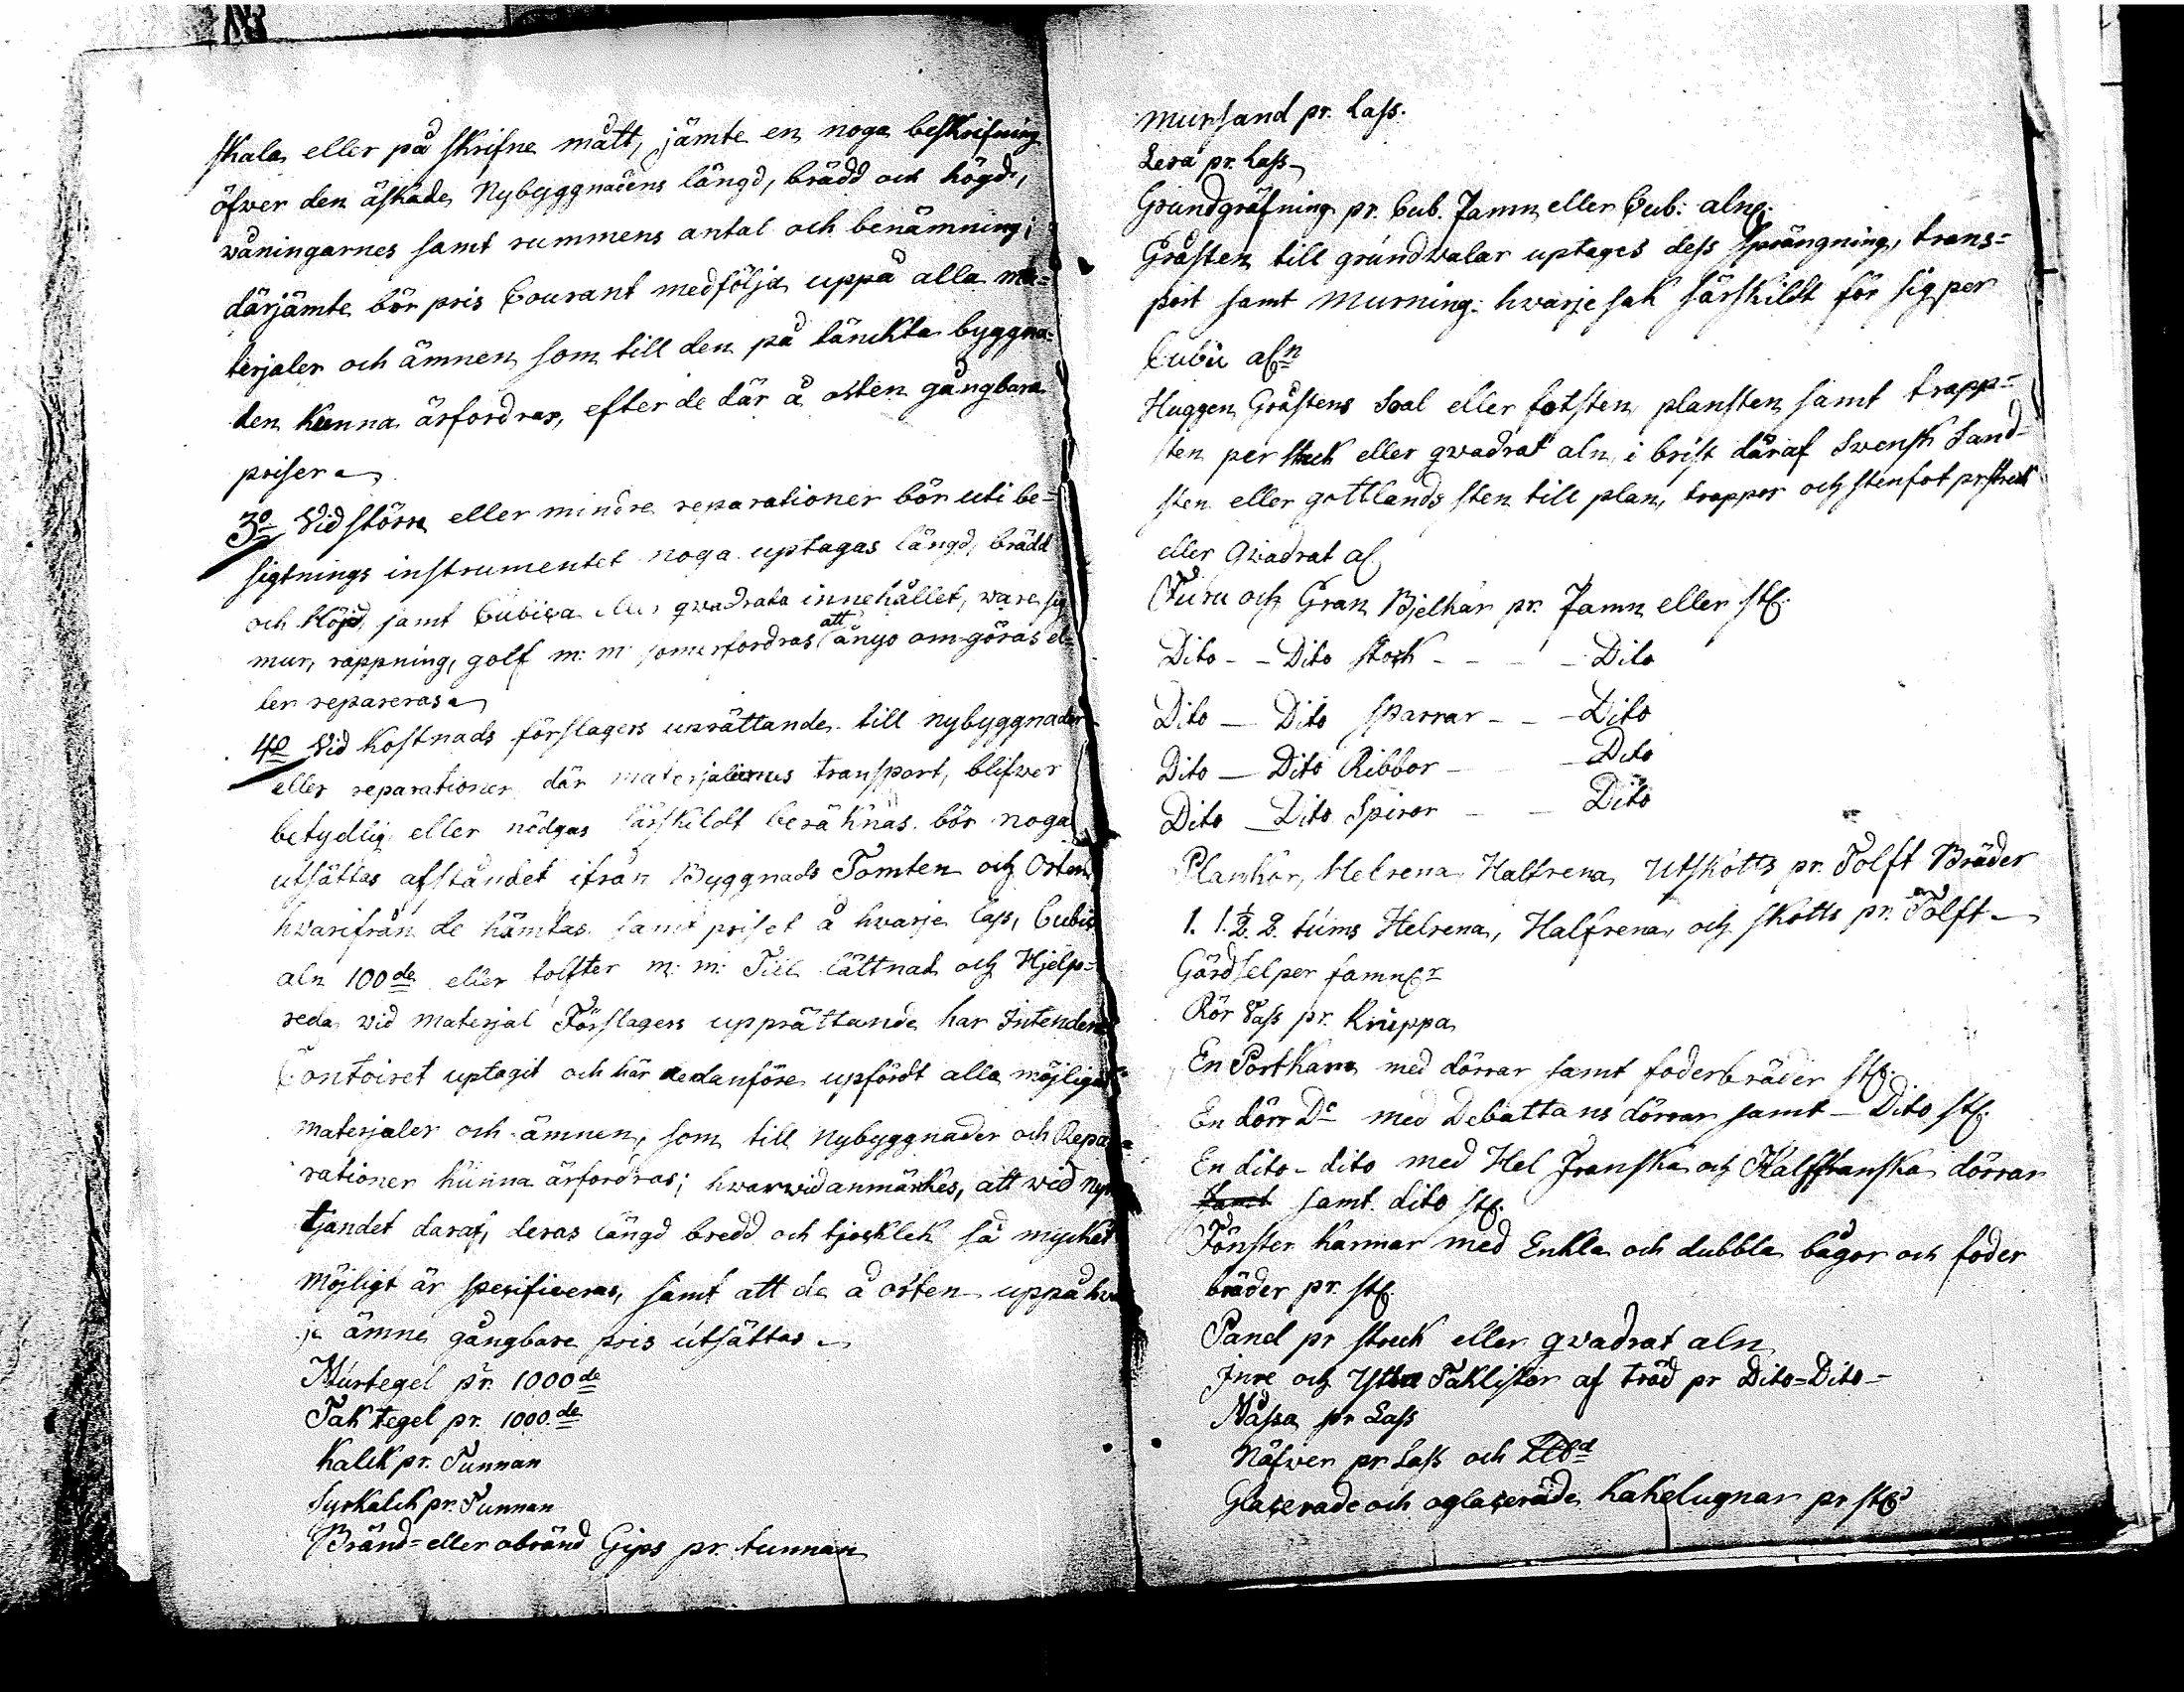 skala eller på skrifne mått, jämte en noga beskrifning
öfwer den äskade Nybyggnadens längd, brädd och högd,
wåningarnes samt rummens antal och benämning;
därjämte bör pris Courant medfölja uppå alla ma=
terjaler och ämnen som till den på tänckta byggna=
den kunna ärfordras, efter de där å orten gångbara
priser
3o Vid större eller mindre reparationer bör uti be=
sigtnings instrumentet noga uptagas längd, brädd
och Höjd, samt Cubica eller qwadrata innehållet, ware sig
mur, rappning, golf m: m: som erfordras att ånyo om-göras el=
ler repareras
4o Vid Kostnads förslagers uprättande till nybyggnader
eller reparationer där materjaliernes transport, blifwer
betydlig eller nödgas särskildt beräknas bör noga
utsättas afståndet ifrån Byggnads Tomten och Orten
hwarifrån de hämtas samt priset å hwarje lass, Cubic
aln 100de eller tolfter m: m: Till lättnad och Hjelp=
reda vid materjal Förslagers upprättande har Intendents
Contoiret uptagit och här nedanföre upfördt alla möjliga
materjaler och ämnen, som till Nybyggnader och Repa=
rationer kunna ärfordras; hwarwid anmärkes, att wid nyt
tjandet daraf, deras längd bredd och tjocklek så mycket
möjligt är specificeras, samt att de å orten uppå hwar
je ämne gångbare pris utsättas
Murtegel pr. 1000de
Tak tegel pr. 1000.de
Kalck pr. Tunnan
Lyrkalck pr. Tunnan
Bränd= eller obränd Gips pr. tunnan
Mursand pr. Lass.
Lera pr. Lass
Grundgräfning pr. Cub. Famn eller Cub: aln
Gråsten till grundwalar uptages dess Sprängning, trans=
port samt Murning: hwarje sak särskildt för sig per
Cubic aln
Huggen Gråstens Soal eller fotsten, plansten samt trapp=
sten per Styck eller qwadrat aln, i brist däraf Swensk Sand=
sten eller gottlands sten till plan, trappor och stenfot pr styck
eller Qwadrat al
Furu och Gran Bjelkar pr. Famn eller st.
Dito - - Dito Stock - - - - Dito
Dito — Dito Sparrar - - - Dito
Dito — Dito Ribbor - - Dito
Dito — Dito Spiror - - Dito
Planckor, Helrena Halfrena Utskotts pr. Tolft Bräder
1. 1.½. 2. tums Helrena, Halfrena, och skotts pr. Tolft
Gärdsel per famn
Rör Vass pr. Knippa
En Portkarm med dörrar samt foderbräder st.
En dörr Do med Debattans dörrar samt — Dito st.
En dito - dito med Hel Franska och Halffranska dörrar
samt samt dito st.
Fönster karmar med Enkla och dubbla bågor och foder
bräder pr. st.
Panel pr styck eller qwadrat aln
Inre och Yttre Taklistor af träd pr Dito=Dito-
Måssa pr Lass
Näfwer pr Lass och
Glacerade och oglacerade Kakelugnar pr st